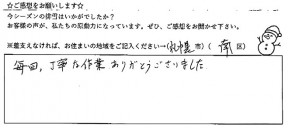 ☆ご感想をお願いします☆
今シーズンの排雪はいかがでしたか？
お客様の声が、私たちの原動力になっています。ぜひ、ご感想をお聞かせ下さい。
※差支えなければ、お住まいの地域をご記入ください→(札幌 市) (南 区)
毎回、丁寧な作業 ありがとうございました